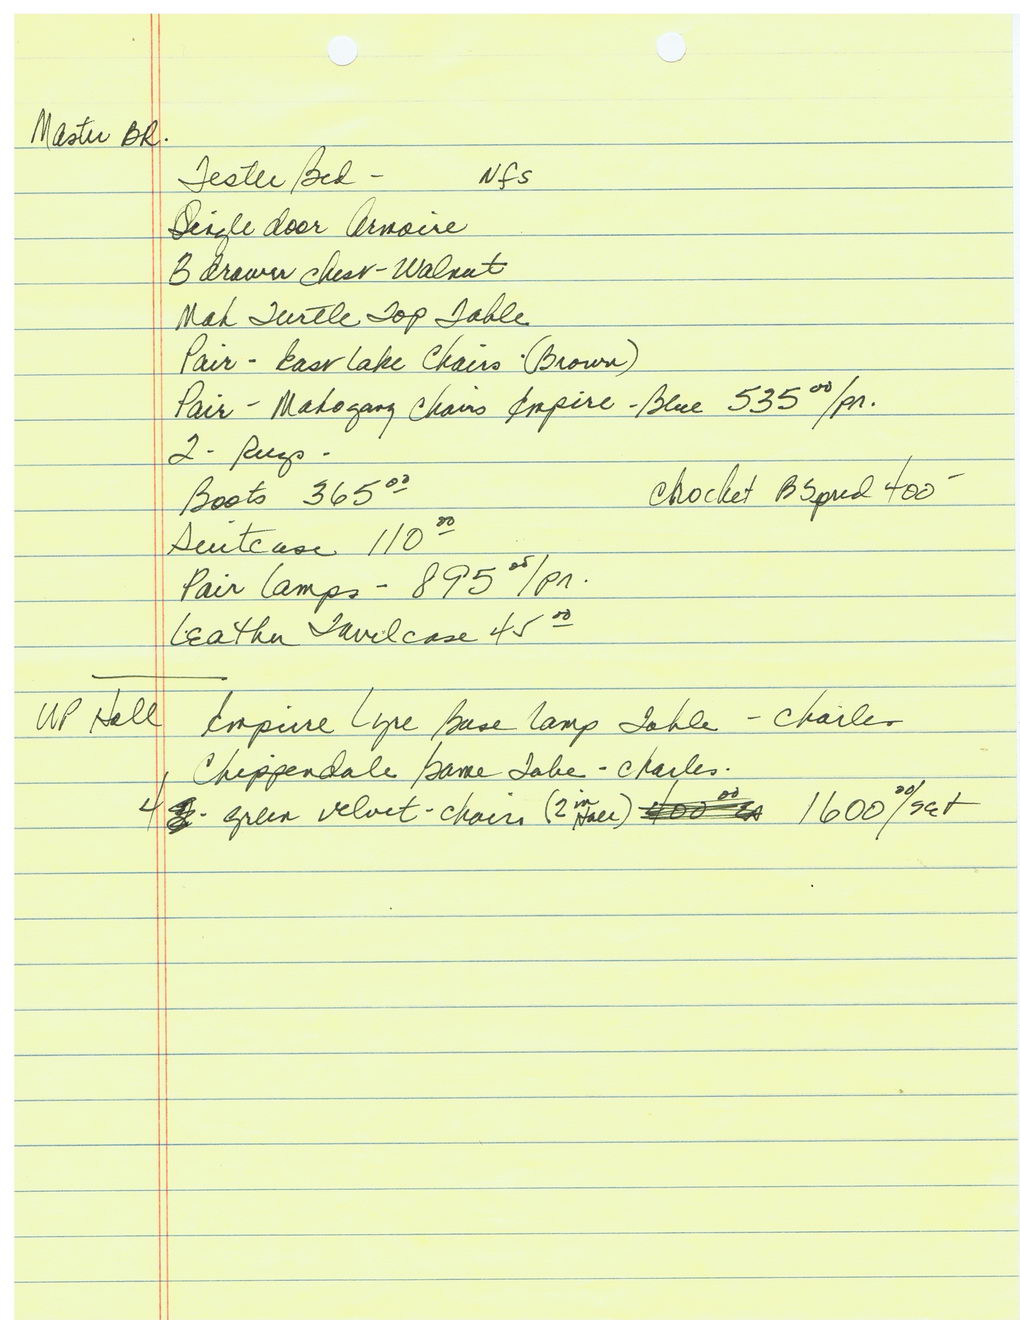 Master BR.
Tester Bed - NfS
Single door Armoire
3 drawer chest - Walnut
Mah Turtle Top Table
Pair - East lake Chairs (Brown)
Pair - Mahogany Chairs Empire - Blue 535.00/pr.
2 - Rugs -
Boots 365.00 Chrocket BSpred 400-
Suitcase 110.00
Pair Lamps - 895.00/pr.
Leather Travlcase 45.00
UP Hall Empire Lyre Base Lamp Table - Charles
Chippendale Game Table - Charles.
4 - green velvet - chairs (2 in Hall) 400.00 EA 1600.00/set